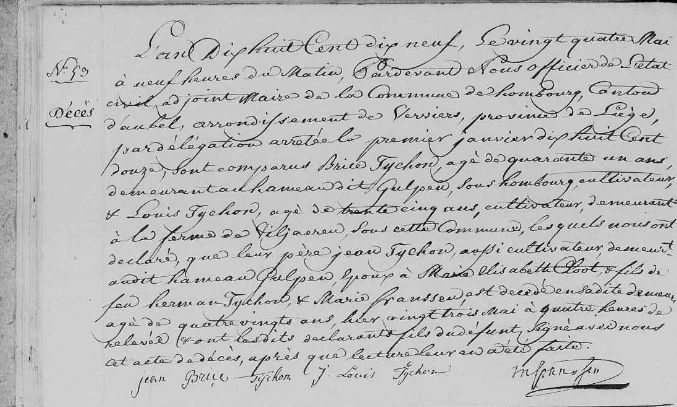 N° 53
Décès
L'an Dix huit Cent dix neuf, Le vingt quatre Mai
à neuf heures du Matin, Pardevant Nous officier de L'état
civil, adjoint Maire de la Commune de hombourg, Canton
d'aubel, arrondissement de Verviers, province de Liège,
par délégation arretée le premier janvier dix huit Cent
douze, sont comparus Brice Tychon, agé de quarante un ans,
demeurant au hameau dit Gulpen, sous hombourg, cultivateur,
& Louis Tychon, agé de trente cinq ans, cultivateur, demeurant
à la ferme de Viljaeren, sous cette Commune, lesquels nous ont
declaré, que leur père jean Tychon, aussi cultivateur demeurt
audit hameau Gulpen, Epoux à Marie Elisabeth Ploot, & fils de
feu herman Tychon, & Marie franssen, est decedé en sadite demeure,
agé de quatre vingts ans, hier, vingt trois Mai à quatre heures de
relevée & ont lesdits declarants fils du défunt, signé avec nous
cet acte de décès, après que lecture leur en a été faite.
jean Brice Tychon J. Louis Tÿchon